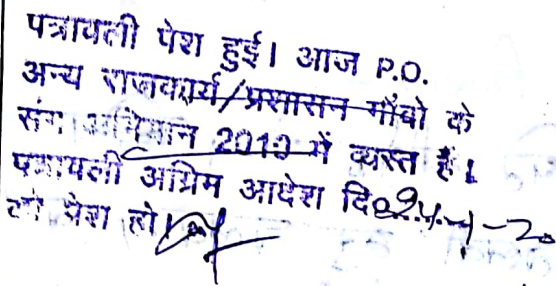 पत्रावली पेश हुई। आज P.O.
अन्य राजकार्य/प्रशासन गाँवो के
संग अभियान 2010 में व्यस्त है।
पत्रावली अग्रिम आदेश दि०
को पेश हो।